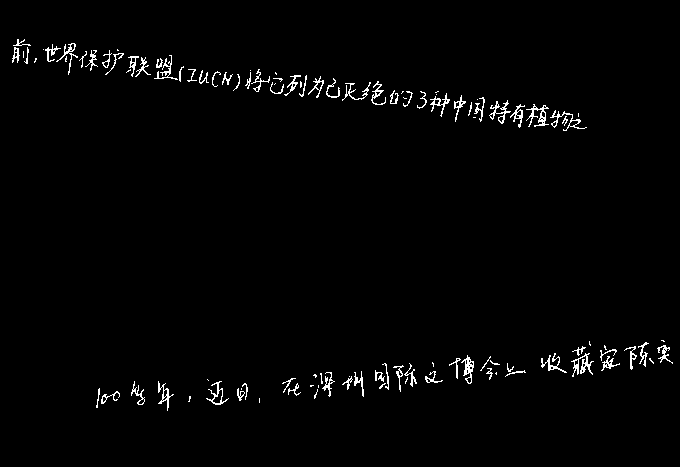 前,世界保护联盟(IUCN)将它列为已灭绝的3种中国特有植物之
100多年,近日,在深圳国际文博会上收藏家陈奕